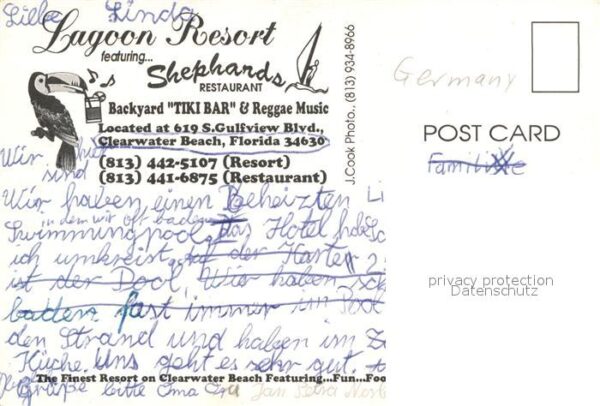 Liebe Linda
Lagoon Resort
featuring...
Shephards
RESTAURANT
Backyard "TIKI BAR" & Reggae Music
Located at 619 S.Gulfview Blvd.,
Clearwater Beach, Florida 34630
(813) 442-5107 (Resort)
(813) 441-6875 (Restaurant)
J.Cook Photo., (813) 934-8966
Germany
POST CARD
Familie
privacy protection
Datenschutz
Wir sind hier
Wir haben einen Beheizten
in dem wir oft baden
Swimmingpool, das Hotel habe
ich umkreist, auf der Karte
ist der Pool, Wir haben
baden fast immer im Pool
den Strand und haben im
Küche. Uns geht es sehr gut.
The Finest Resort on Clearwater Beach Featuring...Fun...Foo
grüße bitte Oma Jan Petra